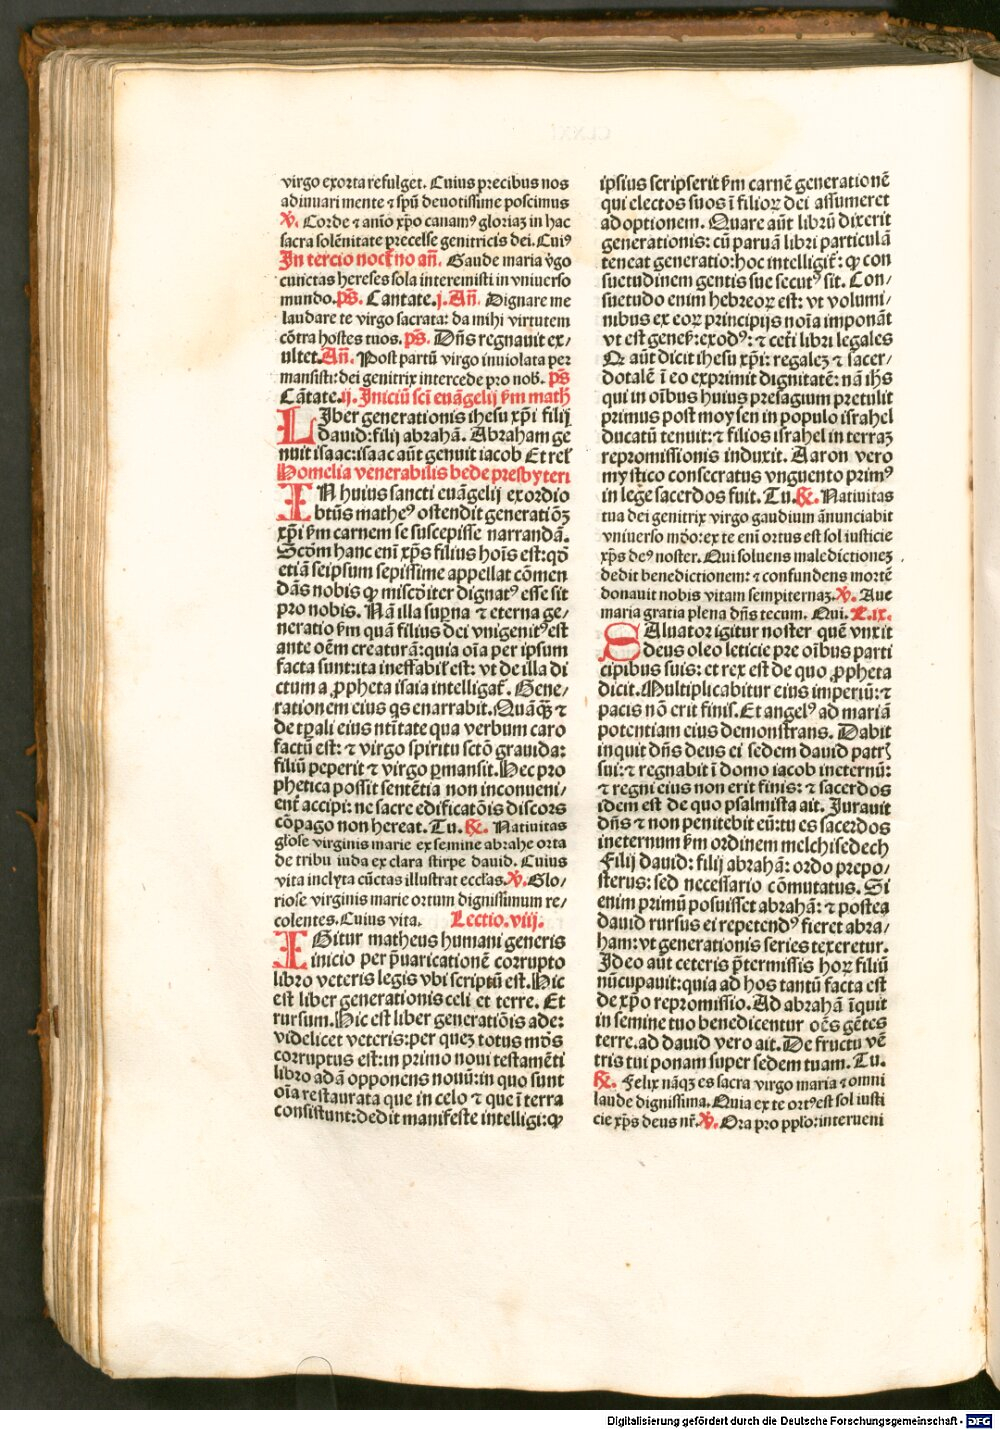 virgo exorta refulget. Cuius precibus nos
adiuuari mente ⁊ spũ deuotissime poscimus
℣. Corde ⁊ aĩo xp̃o canamꝰ gloriaȝ in hac
sacra solẽnitate precelse genitricis dei. Cuiꝰ
In tercio nocť no añ. Gaude maria ṽgo
cunctas hereses sola interemisti in vniuerso
mundo. ps̃. Cantate. j. Añ. Dignare me
laudare te virgo sacrata: da mihi virtutem
cõtra hostes tuos. ps̃. Dñs regnauit ex⸗
ultet. Añ. Post partũ virgo inuiolata per
mansisti: dei genitrix intercede pro nob̃. ps̃
Cãtate. ij. Iniciũ sc̃i euãgelij s̃m math̃
LIber generationis ihesu xp̃i filij
dauid: filij abrahã. Abraham ge
nuit isaac: isaac aũt genuit iacob Et rel̃
Homelia venerabilis bede presbyteri
IN huius sancti euãgelij exordio
btũs matheꝰ ostendit generatiõȝ
xp̃i s̃m carnem se suscepisse narrandã.
Scõm hanc enĩ xp̃s filius hoĩs est: qð
etiã seipsum sepissime appellat cõmen
dãs nobis ꝙ misc̃oiter dignatꝰ esse sit
pro nobis. Nã illa suꝑna ⁊ eterna ge⸗
neratio s̃m quã filius dei vnigenitꝰ est
ante oẽm creaturã: quia oĩa per ipsum
facta sunt: ita ineffabil̃ est: vt de illa di
ctum a ꝓpheta isaia intelligat̃. Gene⸗
rationem eius qs enarrabit. Quãqȝ ⁊
de tp̃ali eius ntĩtate qua verbum caro
factũ est: ⁊ virgo spiritu sctõ grauida:
filiũ peperit ⁊ virgo ꝑmansit. Hec pro
phetica possit sentẽtia non inconueni⸗
ent̃ accipi: ne sacre edificatõis discors
cõpago non hereat. Tu. ℟. Natiuitas
glõse virginis marie ex semine abrahe orta
de tribu iuda ex clara stirpe dauid. Cuius
vita inclyta cũctas illustrat eccl̃as. ℣. Glo⸗
riose virginis marie ortum dignissimum re⸗
colentes. Cuius vita. Lectio. viij.
IGitur matheus humani generis
inicio per p̃uaricationẽ corrupto
libro veteris legis vbi scriptũ est. Hic
est liber generationis celi et terre. Et
rursum. Hic est liber generatiõis ade:
videlicet veteris: per queȝ totus mõs
corruptus est: in primo noui testamẽti
libro adã opponens nouũ: in quo sunt
oĩa restaurata que in celo ⁊ que ĩ terra
consistunt: dedit manifeste intelligi: ꝙ
ipsius scripserit s̃m carnẽ generationẽ
qui electos suos ĩ filioꝝ dei assumeret
adoptionem. Quare aũt librũ dixerit
generationis: cũ paruã libri particulã
teneat generatio: hoc intelligit̃: ꝙ con
suetudinem gentis sue secutꝰ sit. Con⸗
suetudo enim hebreoꝝ est: vt volumi⸗
nibus ex eoꝝ principijs noĩa imponãt
vt est genes̃: exodꝰ: ⁊ cet̃i libri legales
Qꝛ aũt dicit ihesu xp̃i: regaleȝ ⁊ sacer⸗
dotalẽ ĩ eo exprimit dignitatẽ: nã ihs̃
qui in oĩbus huius presagium pretulit
primus post moysen in populo israhel
ducatũ tenuit: ⁊ filios israhel in terraȝ
repromissionis induxit. Aaron vero
mystico consecratus vnguento primꝰ
in lege sacerdos fuit. Tu. ℟. Natiuitas
tua dei genitrix virgo gaudium ãnunciabit
vniuerso mõo: ex te enĩ ortus est sol iusticie
xp̃s deꝰ noster. Qui soluens maledictioneȝ
dedit benedictionem: ⁊ confundens mortẽ
donauit nobis vitam sempiternaȝ. ℣. Aue
maria gratia plena dñs tecum. Qui. L. ix.
SAluator igitur noster quẽ vnxit
deus oleo leticie pre oĩbus parti
cipibus suis: et rex est de quo ꝓpheta
dicit. Multiplicabitur eius imperiũ: ⁊
pacis nõ erit finis. Et angelꝰ ad mariã
potentiam eius demonstrans. Dabit
inquit dñs deus ei sedem dauid patrꝭ
sui: ⁊ regnabit ĩ domo iacob ineternũ:
⁊ regni eius non erit finis: ⁊ sacerdos
idem est de quo psalmista ait. Iurauit
dñs ⁊ non penitebit eũ: tu es sacerdos
ineternum s̃m ordinem melchisedech
Filij dauid: filij abrahã: ordo prepo⸗
sterus: sed necessario cõmutatus. Si
enim primũ posuisset abrahã: ⁊ postea
dauid rursus ei repetendꝰ fieret abra⸗
ham: vt generationis series texeretur.
Ideo aũt ceteris p̃termissis hoꝝ filiũ
nũcupauit: quia ad hos tantũ facta est
de xp̃o repromissio. Ad abrahã ĩquit
in semine tuo benedicentur oẽs gẽtes
terre. ad dauid vero ait. De fructu vẽ
tris tui ponam super sedem tuam. Tu.
℟. Felix nãqȝ es sacra virgo maria ⁊ omni
laude dignissima. Quia ex te ortꝰ est sol iusti
cie xp̃s deus nr̃. ℣. Ora pro pplo: interueni
Digitalisierung gefördert durch die Deutsche Forschungsgemeinschaft - DFG